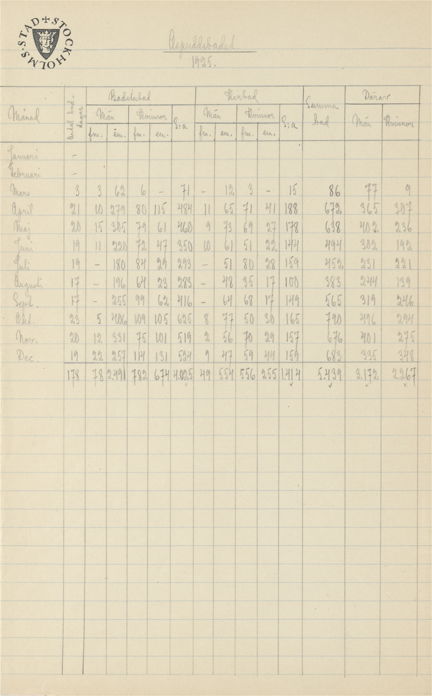 STOCKHOLMS STAD
Aspuddsbadet
1925.
Månad Antal bad-dagar Badstubad Karbad Summa bad Därav
Män Kvinnor S:a Män Kvinnor S:a Män Kvinnor
fm. em. fm. em. fm. em. fm. em.
Januari -
Februari -
Mars 3 3 62 6 - 71 - 12 3 - 15 86 77 9
April 21 10 279 80 115 484 11 65 71 41 188 672 365 307
Maj 20 15 305 79 61 460 9 73 69 27 178 638 402 236
Juni 19 11 220 72 47 350 10 61 51 22 144 494 302 192
Juli 19 - 180 84 29 293 - 51 80 28 159 452 231 221
Augusti 17 - 196 64 23 283 - 48 35 17 100 383 244 139
Sept. 17 - 255 99 62 416 - 64 68 17 149 565 319 246
Okt. 23 5 406 109 105 625 8 77 50 30 165 790 496 294
Nov. 20 12 331 75 101 519 2 56 70 29 157 676 401 275
Dec. 19 22 257 114 131 524 9 47 59 44 159 683 335 348
178 78 2491 782 674 4.025 49 554 556 255 1.414 5.439 3.172 2.267